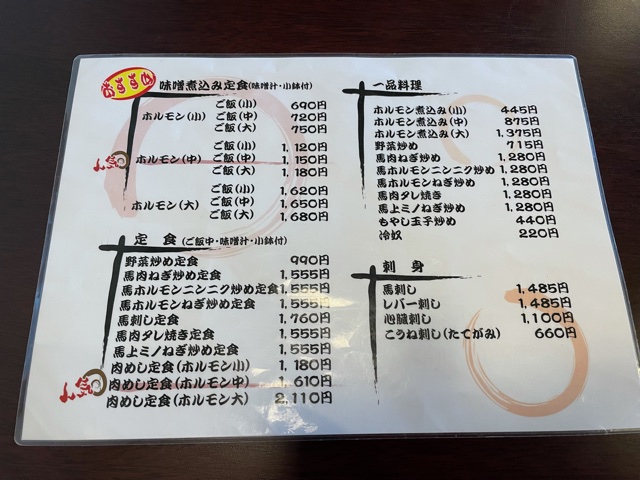 おすすめ
味噌煮込み定食(味噌汁・小鉢付)
ホルモン(小) ご飯(小) 690円
ご飯(中) 720円
ご飯(大) 750円
ホルモン(中) ご飯(小) 1,120円
ご飯(中) 1,150円
ご飯(大) 1,180円
ホルモン(大) ご飯(小) 1,620円
ご飯(中) 1,650円
ご飯(大) 1,680円
定食(ご飯中・味噌汁・小鉢付)
野菜炒め定食 990円
馬肉ねぎ炒め定食 1,555円
馬ホルモンニンニク炒め定食 1,555円
馬ホルモンねぎ炒め定食 1,555円
馬刺し定食 1,760円
馬肉タレ焼き定食 1,555円
馬上ミノねぎ炒め定食 1,555円
肉めし定食(ホルモン小) 1,180円
肉めし定食(ホルモン中) 1,610円
肉めし定食(ホルモン大) 2,110円
一品料理
ホルモン煮込み(小) 445円
ホルモン煮込み(中) 875円
ホルモン煮込み(大) 1,375円
野菜炒め 715円
馬肉ねぎ炒め 1,280円
馬ホルモンニンニク炒め 1,280円
馬ホルモンねぎ炒め 1,280円
馬肉タレ焼き 1,280円
馬上ミノねぎ炒め 1,280円
もやし玉子炒め 440円
冷奴 220円
刺身
馬刺し 1,485円
レバー刺し 1,485円
心臓刺し 1,100円
こうね刺し(たてがみ) 660円